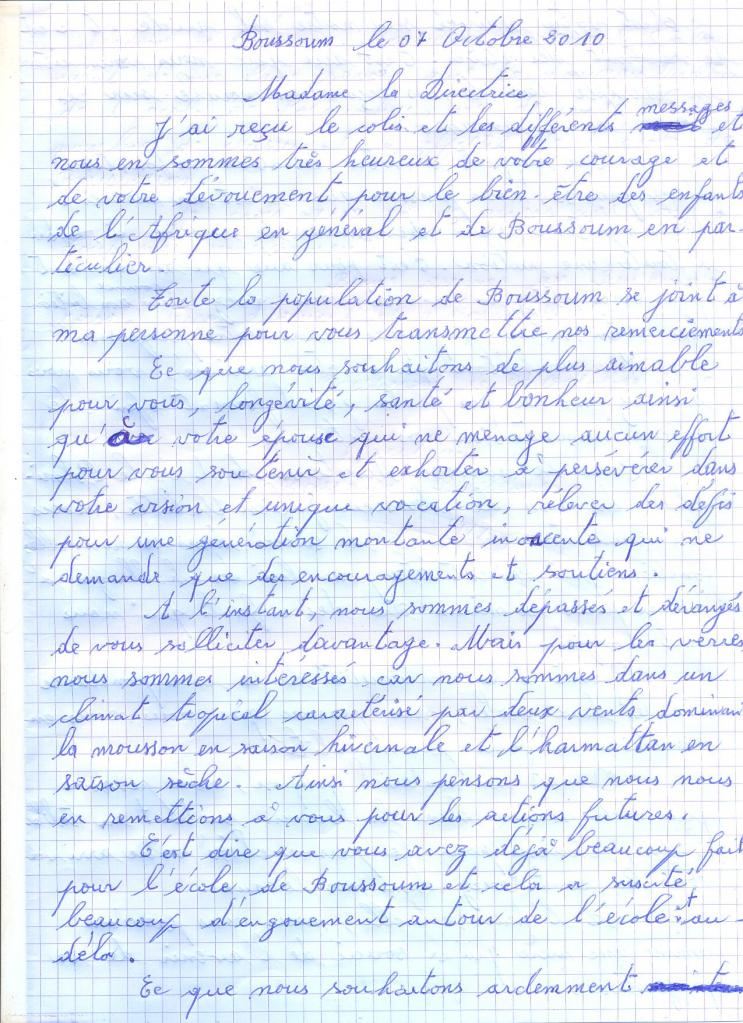 Boussoum le 07 Octobre 2010
Madame la Directrice
J'ai reçu le colis et les différents messages et
nous en sommes très heureux de votre courage et
de votre dévouement pour le bien-être des enfants
de l'Afrique en général et de Boussoum en par-
ticulier.
Toute la population de Boussoum se joint à
ma personne pour vous transmettre nos remerciements
Ce que nous souhaitons de plus aimable
pour vous, longévité, santé et bonheur ainsi
qu'à votre épouse qui ne ménage aucun effort
pour vous soutenir et exhorter à persévérer dans
votre vision et unique vocation, rélever des défis
pour une génération montante inocente qui ne
demande que des encouragements et soutiens.
A l'instant, nous sommes dépassés et dérangés
de vous solliciter davantage. Mais pour les verres
nous sommes intéréssés car nous sommes dans un
climat tropical caractérisé par deux vents dominan
la mousson en saison hivernale et l'harmattan en
saison sèche. Ainsi nous pensons que nous nous
en remettions à vous pour les actions futures.
C'est dire que vous avez déjà beaucoup fait
pour l'école de Boussoum et cela a suscité
beaucoup d'engouement autour de l'école et au-
délà.
Ce que nous souhaitons ardemment